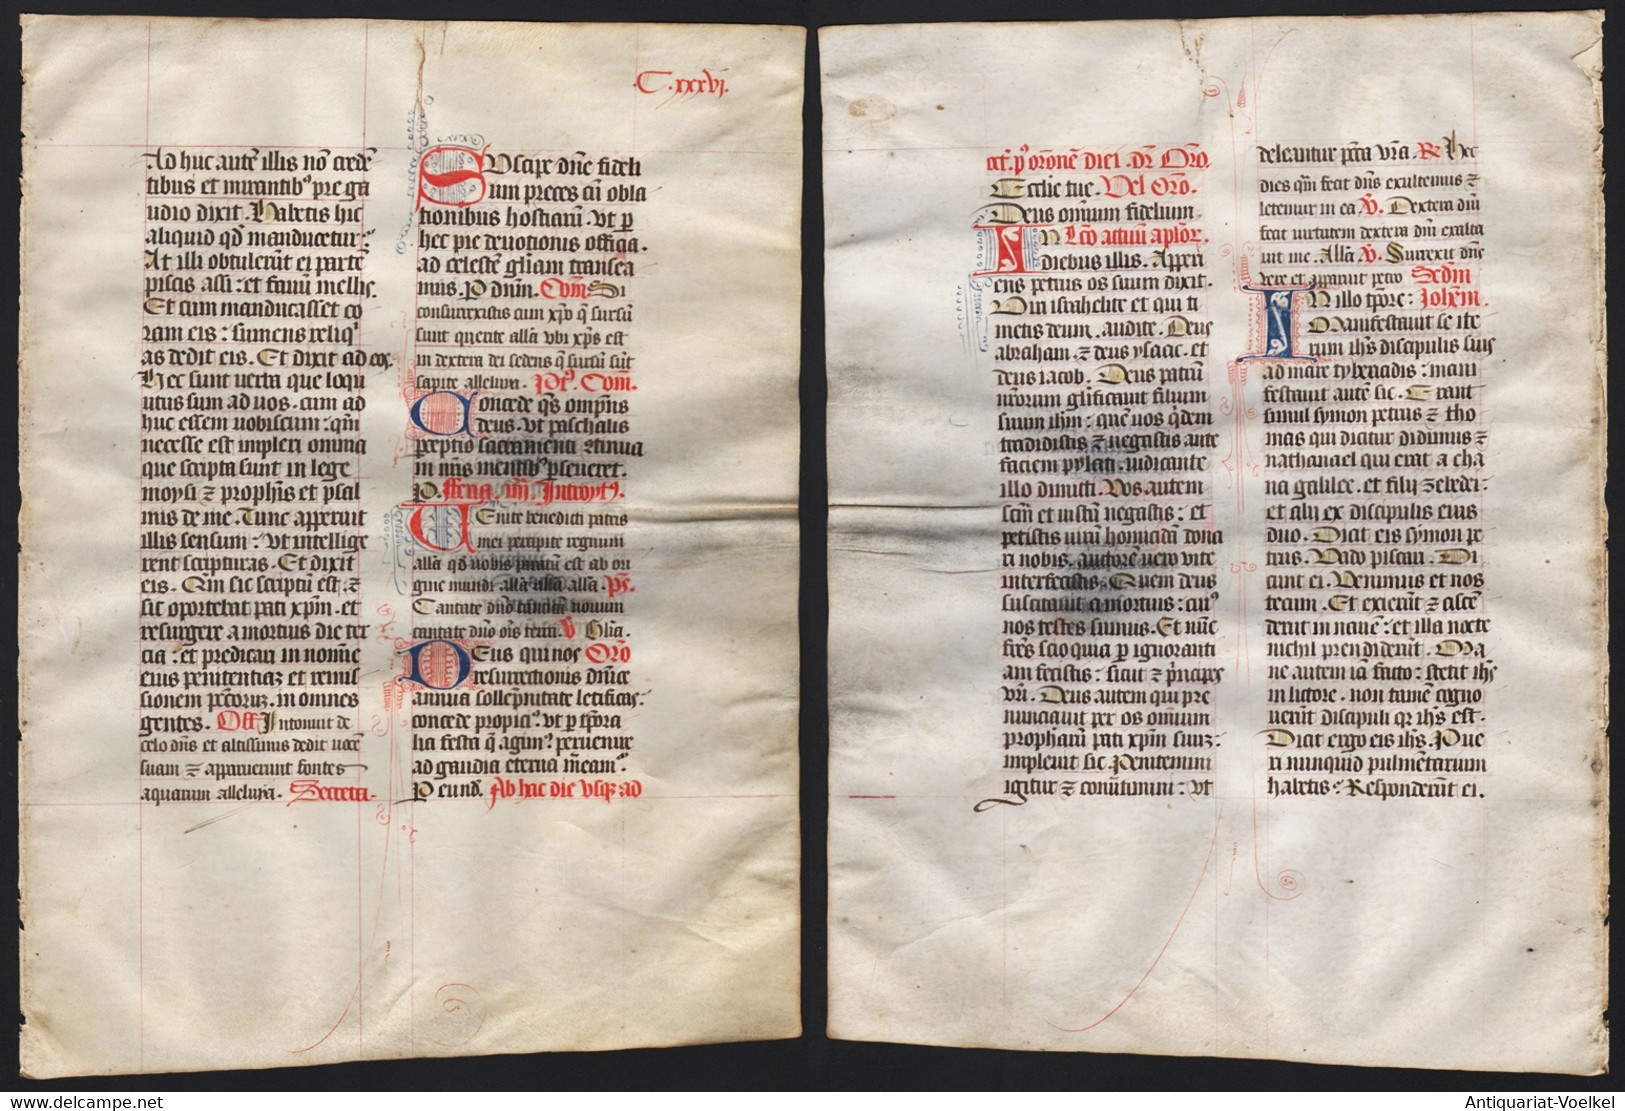 .C.xxxvj.
Ad huc autē illis nō credē
tibus et mirantibꝰ pre ga
udio dixit. Habetis hic
aliquid qd̄ manducetur?
At illi obtulerūt ei partē
piscis assi: et favū mellis.
Et cum manducasset co
ram eis: sumens reliqͥ
as dedit eis. Et dixit ad eos.
Hec sunt verba que loqu
utus sum ad vos. cum ad
huc essem vobiscum: qm̄
necesse est impleri omnia
que scripta sunt in lege
moysi ⁊ prophīs et psal
mis de me. Tunc apperuit
illis sensum: vt intellige
rent scripturas. Et dixit
eis. Qm̄ sic scriptū est. ⁊
sic oportebat pati xp̄m. et
resurgere a mortuis die ter
cia: et predicari in nomīe
eius penitentiaȝ et remis
sionem pctōrum in omnes
gentes. Off. Intonuit de
celo dn̄s et altissimus dedit vocē
suam ⁊ apparuerunt fontes
aquarum alleluya. Secreta.
Suscipe dn̄e fideli
um preces cū obla
tionibus hostiarū. vt p
hec pie devotionis officia.
ad celestē glīam transea
mus. P dn̄m. Com̄. Si
consurrexistis cum xp̄o q̄ sursū
sunt querite allā vbi xp̄s est
in dextera dei sedens q̄ sursū sūt
sapite alleluya. Pꝰ. Com̄.
Concede qs̄ omp̄ns
deus. vt paschalis
perceptio sacramenti ⁊tinua
in nr̄is mentibꝰ pseveret.
P. Feria. iiij. Introytꝰ.
Venite benedicti patris
mei percipite regnum
allā qd̄ vobis paratū est ab ori
gine mundi allā allā allā. Ps̄.
Cantate dn̄o canticū novum
cantate dn̄o oīs terra. V Glīa.
Deus qui nos Orō
resurrectionis dn̄ice
annua sollēpnitate letificas.
concede propiciꝰ. vt p tp̄ora
lia festa q̄ agimꝰ. pervenire
ad gaudia eterna m̄eamꝰ.
P eund. Ab hac die vsqȝ ad
oct. p orōnē diei. dr̄ Orō.
Ecclie tue. Vel Orō.
Deus omīum fidelium.
In Lcō actuū ap̄lor.
diebus illis. Apperi
ens petrus os suum dixit.
Viri israhelite et qui ti
metis deum. audite. Deus
abraham. ⁊ deus ysaac. et
deus iacob. Deus patrū
nr̄orum glificavit filium
suum ihm̄: quē vos qͥdem
tradidistis ⁊ negastis ante
faciem pylati. iudicante
illo dimitti. Vos autem
scm̄ et iustū negastis: et
petistis virū homicidā dona
ri vobis. auctorē vero vite
interfecistis. Quem deus
suscitavit a mortuis: cuiꝰ
nos testes sumus. Et nūc
fr̄es scio quia p ignoranti
am fecistis: sicut ⁊ pͥncipes
vr̄i. Deus autem qui pre
nunciavit per os omīum
propharū pati xp̄m suuȝ:
implevit sic. Penitemini
igitur ⁊ conv̄timini: vt
deleantur pctā vrā. R Hec
dies qm̄ fecit dn̄s exultemus ⁊
letemur in ea V̄. Dextera dn̄i
fecit virtutem dextera dn̄i exalta
vit me. Allā V̄. Surrexit dn̄s
vere et apparuit petro Sed̄m
In illo tp̄ore: Johēm.
Manifestavit se ite
rum ih̄s discipulis suis
ad mare tyberiadis: mani
festavit autē sic. Erant
simul symon petrus ⁊ tho
mas qui dicitur didimus ⁊
nathanael qui erat a cha
na galilee. et filij zebedei:
et alij ex discipulis eius
duo. Dicit eis symon pe
trus. Vado piscari. Di
cunt ei. Venimus et nos
tecum. Et exierūt ⁊ ascē
derūt in navē: et illa nocte
nichil prendiderūt. Ma
ne autem iā facto: stetit ih̄s
in littore. non tamē cogno
verūt discipuli qꝛ ih̄s est.
Dicit ergo eis ih̄s. Pue
ri nunquid pulmētarium
habetis: Responderūt ei.
Antiquariat-Voelkel